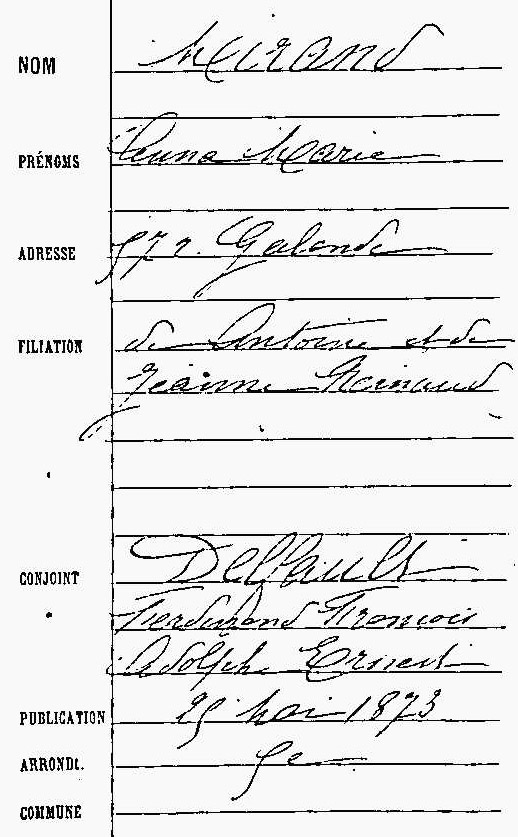 NOM Meirand
PRÉNOMS Anna Marie
ADRESSE 57 r. Galande
FILIATION de Antoine et de
Jeanne
CONJOINT Delfault
Ferdinand François
Adolphe Ernest
PUBLICATION 25 Mai 1873
ARRONDt. 5e
COMMUNE